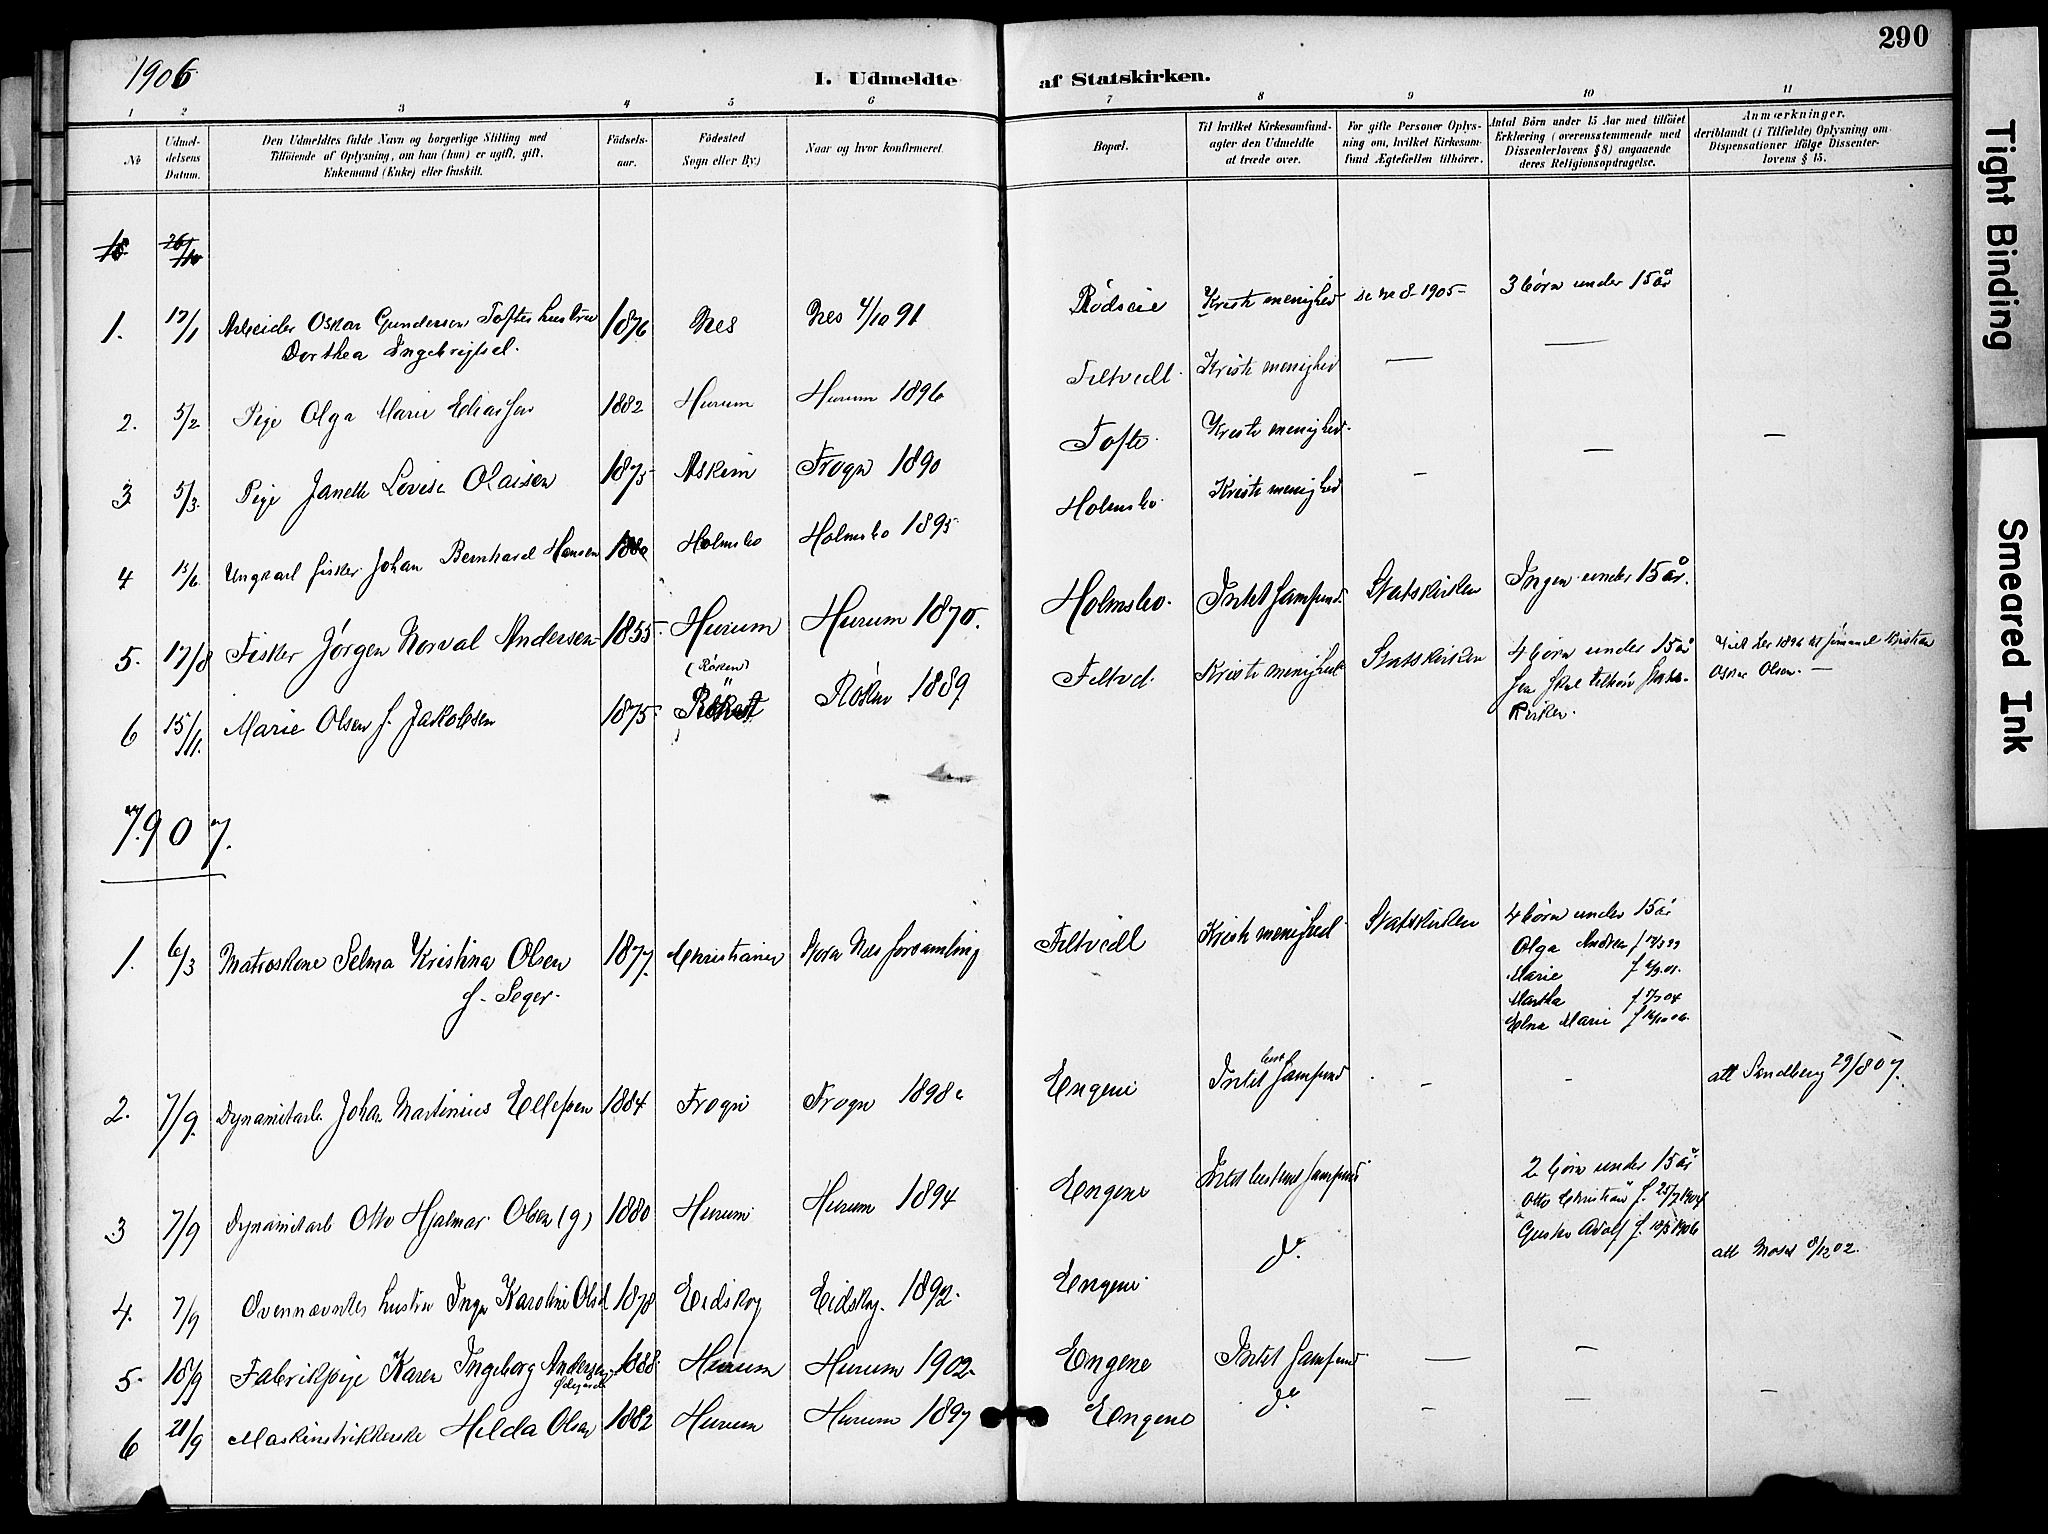 290
1906
I. Udmeldte af Statskirken.
1 2 3 4 5 6 7 8 9 10 11
No
Udmeldelsens Datum.
Den Udmeldtes fulde Navn og borgerlige Stilling med Tilföiende af Oplysning, om han (hun) er ugift, gift, Enkemand (Enke) eller fraskilt.
Födselsaar.
Födested Sogn eller By)
Naar og hvor konfirmeret.
Bopæl.
Til hvilket Kirkesamfund agter den Udmeldte at træde over.
For gifte Personer Oplysning om, hvilket Kirkesamfund Ægtefællen tilhörer.
Antal Börn under 15 Aar med tilföiet Erklæring (overensstemmende med Dissenterlovens § 8) angaaende deres Religionsopdragelse.
Anmærkninger, deriblandt (i Tilfælde) Oplysning om Dispensationer ifölge Dissenterlovens § 15.
18 26/10
1. 17/1 Arbeider Oskar Gundersen Toftes hustru 1876 Nes Nes 4/10 91 Rödseie Kristi menighed se no 8 - 1905 - 3 börn under 15 år
Dorthea Engebrigtsd.
2. 5/2 Pige Olga Marie Eliassen 1882 Hurum Hurum 1896 Filtvedt. Kristi menighed — —
3 5/3. Pige Janette Lovise Olaisen 1875 Askim Frogn 1890 Tofte. Kristi menighed. — —
4 13/6. Ungkarl fisker Johan Bernhard Hansen 1880 Holmsbo Holmsbo 1895 Holmsbo. Kristi menighed —
5. 17/8 Fisker Jörgen Norval Andersen 1855 Hurum Hurum 1870. Holmsbo. Intet samfund. Statskirken Ingen under 15 år.
6 15/11. Marie Olsen f. Jakobsen 1875 (Röken) Röken 1889 Filtved. Kristi menighed Statskirken 4 börn under 15 år
Oskar Olsen. —
kirken.
1907.
1. 6/3 Matroskone Selma Kristina Olsen 1877. Christiania Filtvedt Kristi menighed. Statskirken 4 börn under 15 år
f. Seger.
Olga Andrea
Marie
Martha f 7/7 04
Elna Marie
2. 7/9. Dynamitarb. Johan Martinius Ellefsen 1884 Frogn Frogn 1898. Engene Intet best. samfund — — att Sandberg 29/8 07.
3 7/9 Dynamitarb Otto Hjalmar Olsen (g) 1880 Hurum Hurum 1894 Engene Intet bestemt samfund 2 börn under 15 år
Otto Christian f. 25/7 1904
Gustav Adolf
4. 7/9 Ovennævntes hustru Inga Karoline Olsen 1878 Eidskog Eidskog. 1892. Engene do. att Moss 8/12 02.
5. 18/9 Fabrikpige Karen Ingeborg Andersen 1888 Hurum Hurum 1902. Engene Intet samfund — —
6 20/9 Maskinstrikkerske Hilda Olsen 1882 Hurum Hurum 1897 Engene do. — — —
Tight Binding
Smeared Ink